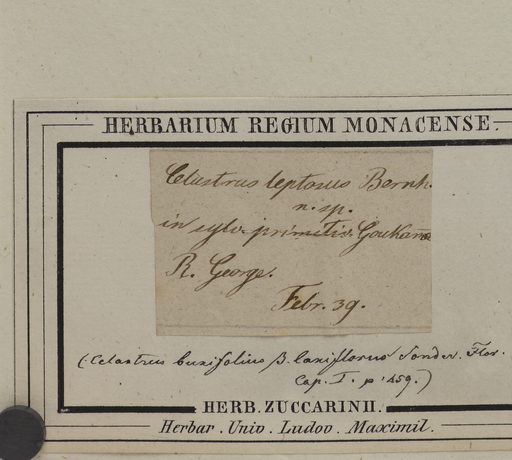 HERBARIUM REGIUM MONACENSE.
Celastrus leptosus Bernh.
n. sp.
in sylv. primitiv. Goukama
R. George.
Febr. 39.
(Celastrus buxifolius β. laxiflorus Sonder. Flor.
Cap. I. p. 459.)
HERB. ZUCCARINII.
Herbar. Univ. Ludov. Maximil.